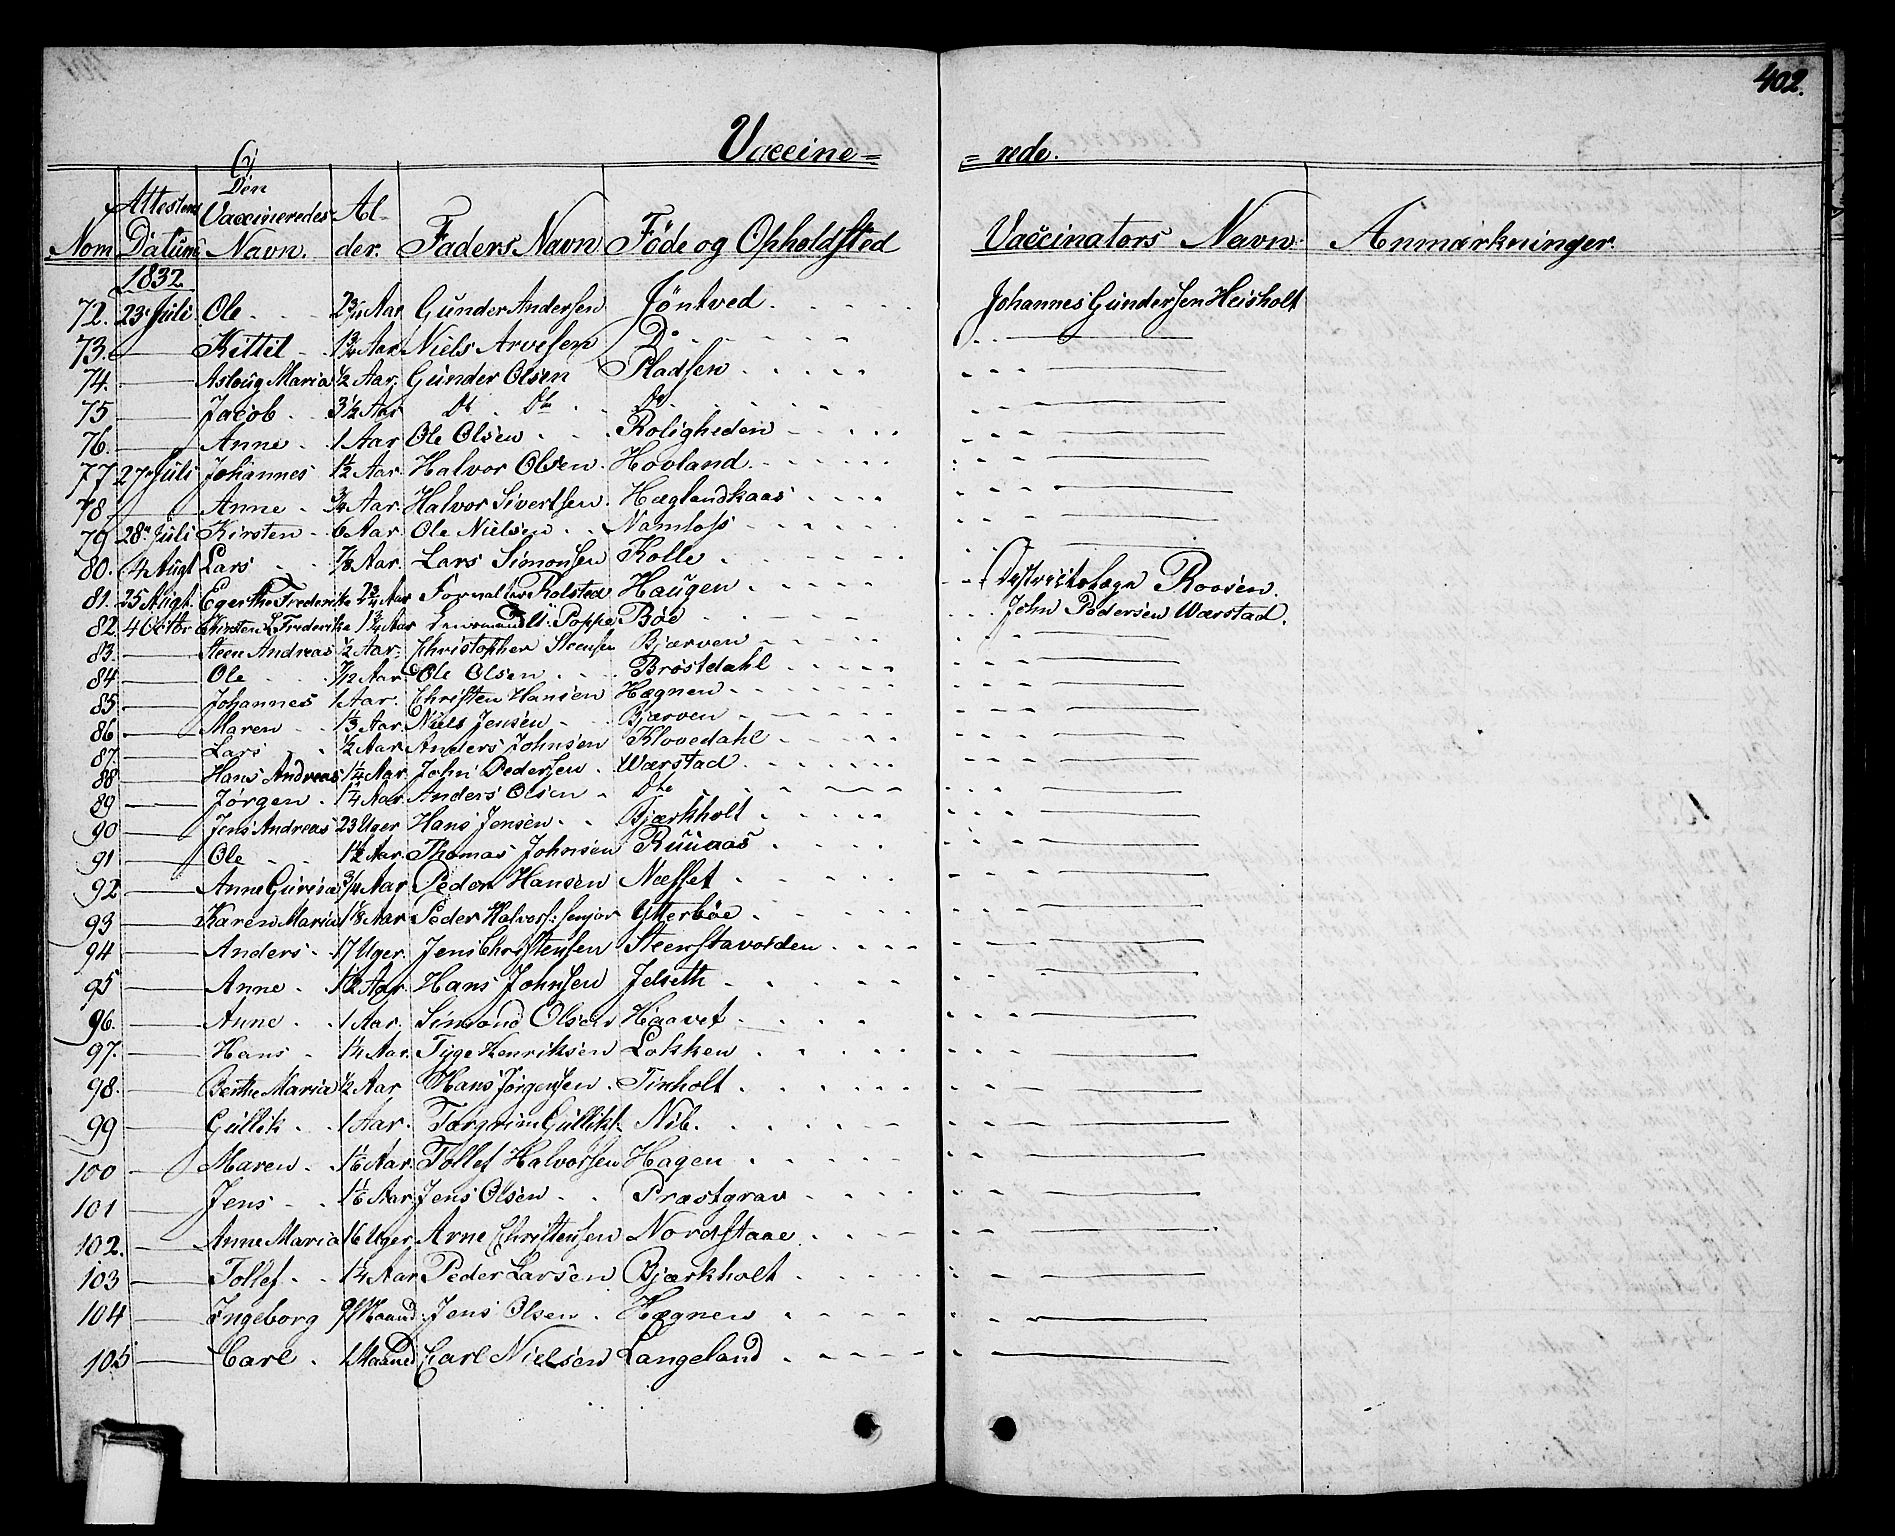 402.
Vaccine= =rede.
Nom Attestens Datum Den Vaccineredes Navn. Alder. Faders Navn Föde og Opholdsted Vaccinators Navn Anmærkninger.
1832
72. 23 Juli Ole Aar Gunder Andersen Jöntved Johannes Gundersen Heisholt
73. — Kittil 1 3/4 Aar Niels Arvesen Do —
74. — Aslaug Maria 1/2 Aar. Gunder Olsen Pladsen —
75 — Jacob 3 1/2 Aar Do Do Do —
76. — Anne 1 Aar Ole Olsen Roligheden —
77 27 Juli Johannes 1 1/2 Aar Halvor Olsen Hovland —
78 — Anne 3/4 Aar Halvor Sivertsen Hæglandkaas —
79 28 Juli Kirsten 6 Aar Ole Nielsen Namloss —
80. 4 Augt Lars 7/8 Aar. Lars Simonsen Kolle —
81. 25 Augt. Egerthe Frederike 2 3/4 Aar Forvalter Rolsted Haugen Districtslæge Roosen.
82. 4 Octbr Kirsten L Frederike 1 3/4 Aar Lensmand U. Poppe Böe John Pedersen Warstad.
83. — Steen Andreas 1/2 Aar. Christopher Steensen Bjærven —
84 — Ole 7/12 Aar Ole Olsen Bröstdahl —
85 — Johannes 1 Aar. Christen Hansen Hægnen —
86 — Maren 1 1/3 Aar. Niels Jensen Bjærven —
87. — Lars 1/2 Aar Anders Johnsen Klovedahl —
88 — Hans Andreas 1 1/4 Aar John Pedersen Warstad —
89 — Jørgen 1 1/4 Aar Anders Olsen Do —
90 — Jens Andreas 23 Uger Hans Jensen Bjærkholt —
91 — Ole 1 1/2 Aar. Thomas Johnsen Ruuaas —
92 — Anne Gurine 3/4 Aar Peder Hansen Næsset —
93 — Karen Maria 1 1/8 Aar Peder Halvors: senjor Ytterböe —
94 — Anders 17 Uger. Jens Christensen Steenstavolden —
95 — Anne 1 1/2 Aar. Hans Johnsen Jelseth —
96. — Anne 1 Aar. Simond Olsen Haavet —
97. — Hans 1 1/4 Aar. Tyge Henriksen Lokken —
98. — Berthe Maria 1/2 Aar Hans Jörgensen Tinholt —
99 — Gullik 1 Aar. Torgrim Gullikt. Nib. —
100 — Maren 1 1/6 Aar. Tollef Halvorsen Hagen —
101 — Jens 1 1/6 Aar. Jens Olsen Præstgrav —
102. — Anne Maria 16 Uger Arne Christensen Nordstaae —
103 — Tollef 1 1/4 Aar Peder Larsen Bjærkholt —
104 — Ingeborg 9 Maaned. Jens Olsen Hægnen —
105 — Carl 1 Maaned Carl Nielsen Langeland —